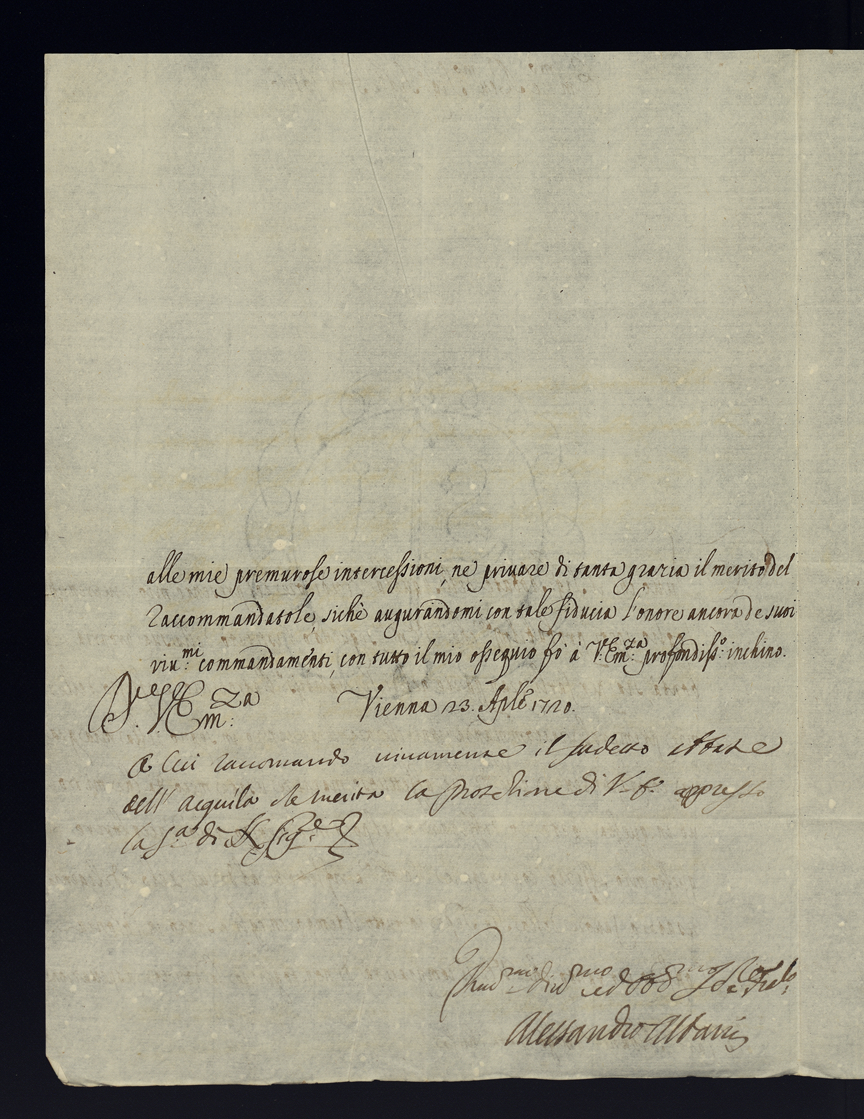 alle mie premurose intercessioni, ne privare di tanta grazia il merito del
Raccommandatole, sichè augurandomi con tale fiducia l'onore ancora de suoi
riv.mi commandamenti, con tutto il mio ossequio fò à V. Em.za profondiss.o inchino.
Vienna 23. Aple 1720.
V. Em.za
a cui raccomando vivamente il sudetto Abate
dell' Acquila che merita la protetione di V. E. appresso
la S.a di
Alessandro Albani